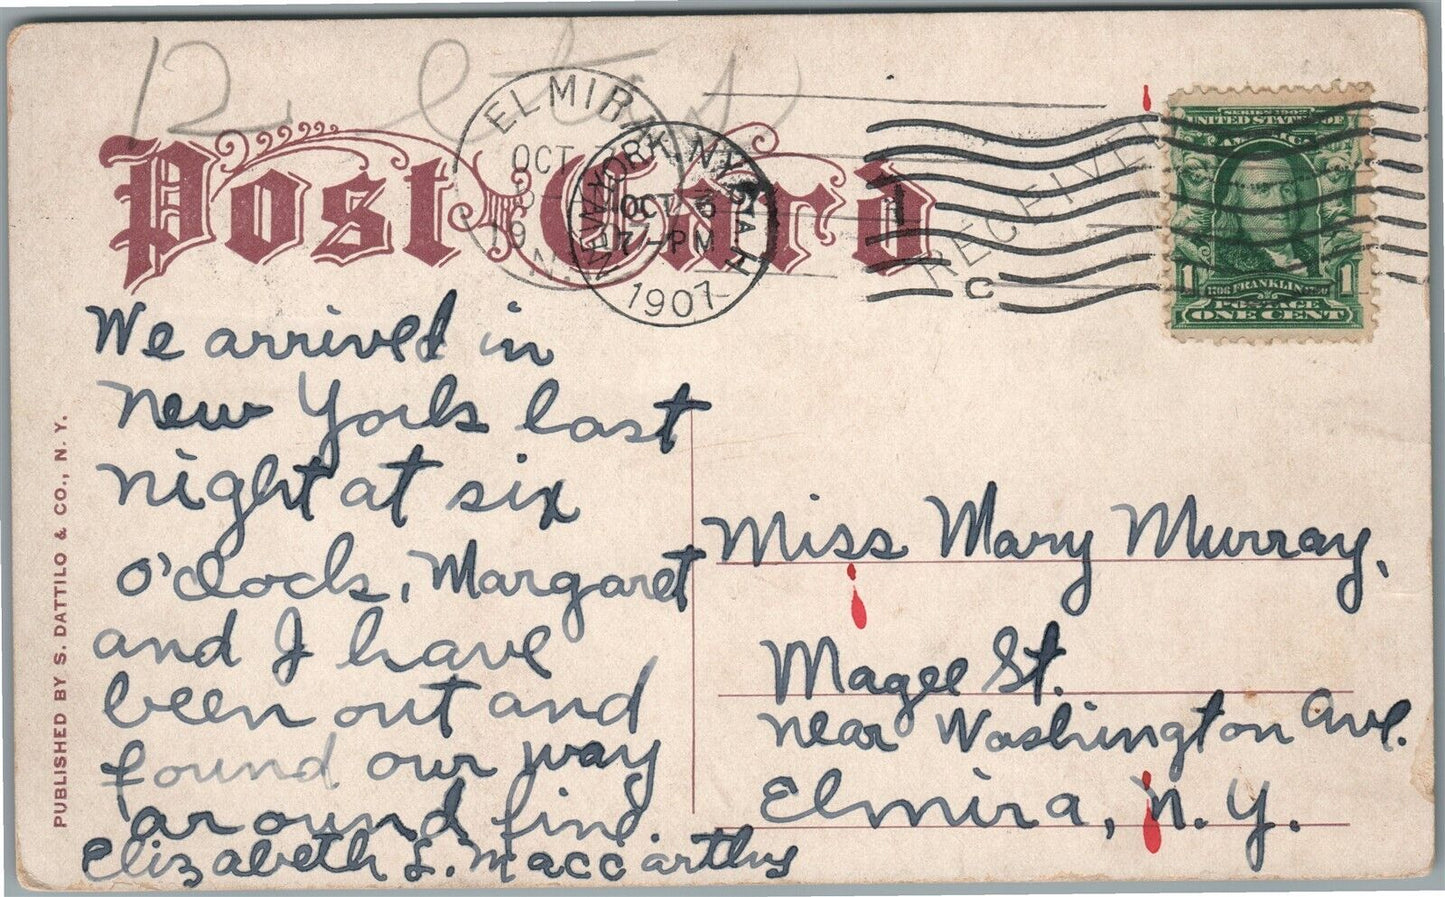 Post Card
ELMIRA
OCT
19
N.
NEW YORK, N.Y. STA. H
OCT 6
7-PM
1907
RECEIVED
C
SERIES 1902
UNITED STATES OF
1 1
FRANKLIN
POSTAGE
ONE CENT
PUBLISHED BY S. DATTILO & CO., N. Y.
We arrived in
New York last
night at six
o'clock, Margaret
and I have
been out and
found our way
around fine.
Elizabeth L. Maccarthy
Miss Mary Murray,
Magee St.
near Washington Ave.
Elmira, N. Y.